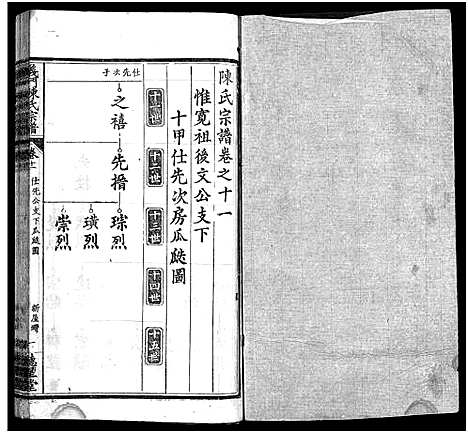 陳氏宗譜卷之十一
惟寬祖後文公支下
十甲仕先次房瓜瓞圖
十一世
十二世
十三世
十四世
十五世
仕先次子
之禧
先搢
琮烈
璜烈
崇烈
義門陳氏宗譜
卷十一
仕先公支下瓜瓞圖
新屋灣
一
德星堂